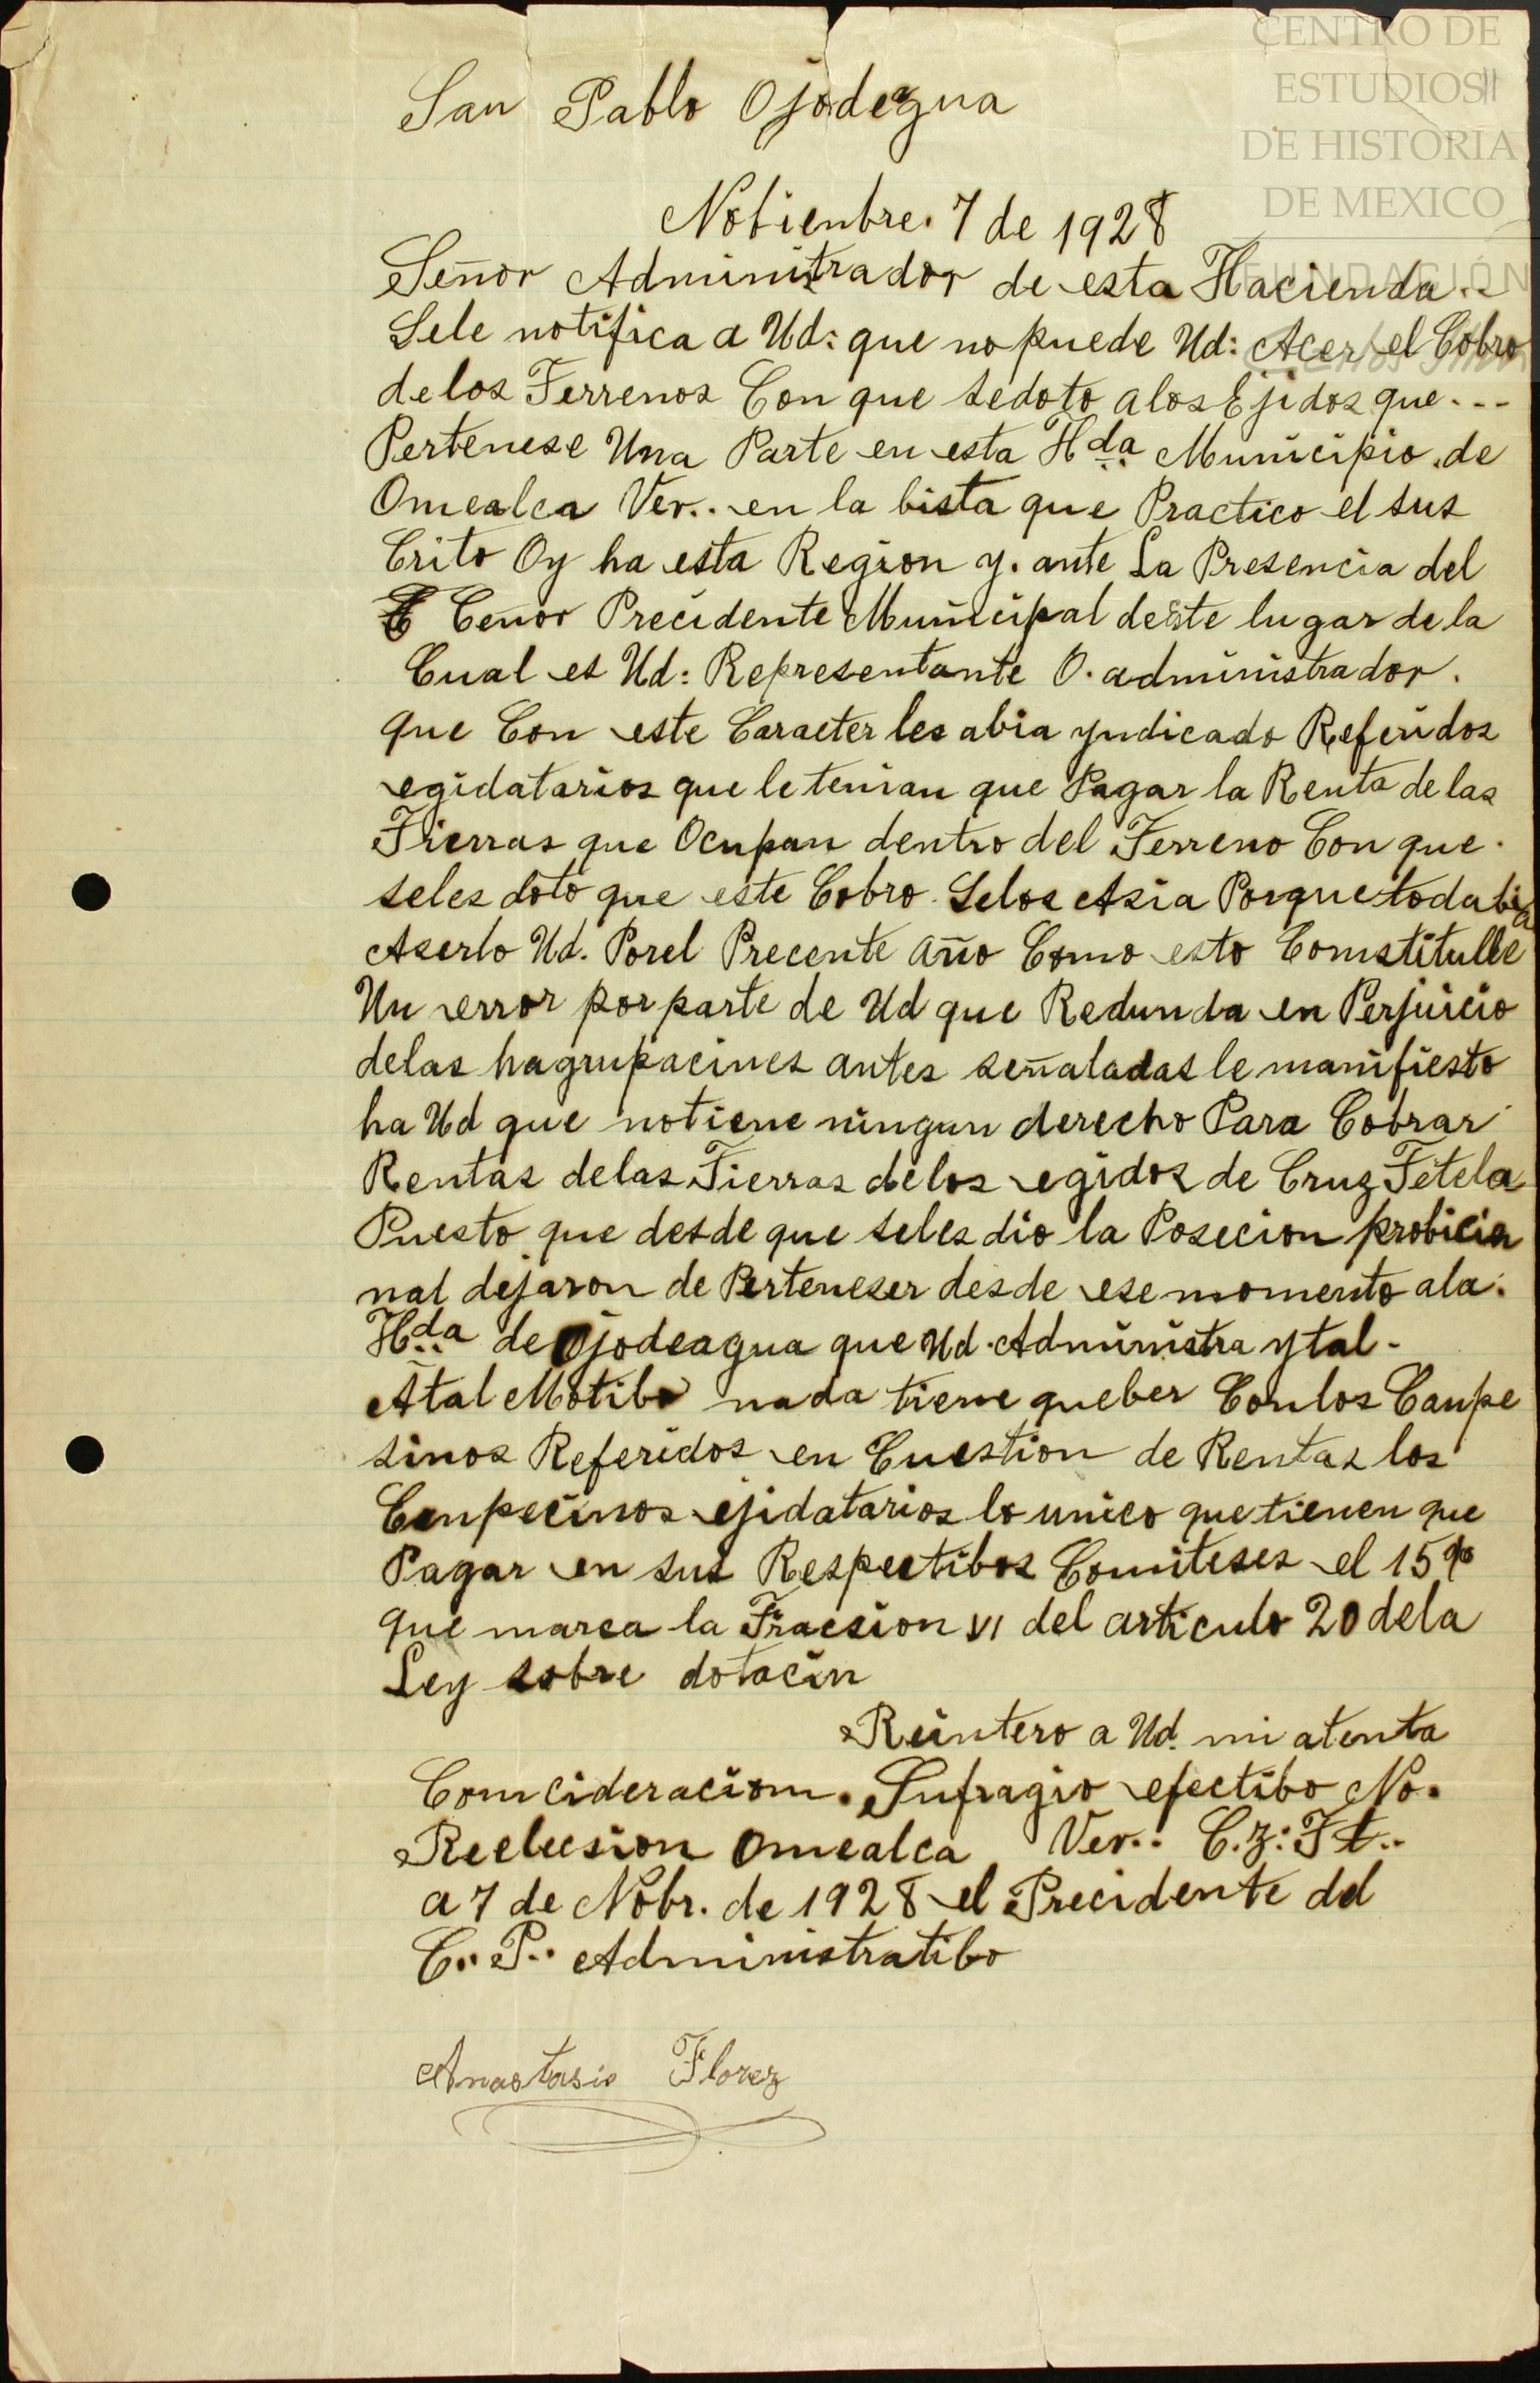 CENTRO DE
ESTUDIOS
DE HISTORIA
DE MEXICO
FUNDACIÓN
San Pablo Ojodegua
Nobienbre. 7 de 1928
Señor Administrador de esta Hacienda..
Sele notifica a Ud: que no puede Ud: Acer el Cobro
delos Terrenos Con que sedoto alos Ejidos que...
Pertenese Una Parte en esta Hda Municipio de
Omealca Ver.. en la bista que Practico el sus
Crito Oy ha esta Region y. ante La Presencia del
Cenor Precidente Municipal deeste lugar de la
Cual es Ud: Representante O. administrador.
que Con este Caracter les abia yndicado Referidos
egidatarios que le tenian que Pagar la Renta de las
Tierras que Ocupan dentro del Terreno Con que.
seles doto que este Cobro Selos Asia Porque todabia
Aserlo Ud. Porel Precente año Como esto Comstitulle
Un error por parte de Ud que Redunda en Perjuicio
delas hagrupacines antes señaladas le manifiesto
ha Ud que notiene ningun derecho Para Cobrar
Rentas delas Tierras delos egidos de Cruz Tetela
Puesto que desde que seles dio la Posecion probicio
nal dejaron de Perteneser desde ese momento ala.
Hda de Ojodeagua que Ud. Administra ytal-
Atal Motibo nada tiene queber Conlos Canpe
sinos Referidos en Cuestion de Rentas los
Canpecinos ejidatarios lo unico que tienen que
Pagar en sus Respectibos Comiteses el 15%
que marca la Fracsion VI del articulo 20 dela
Ley sobre dotacin
Reintero a Ud. mi atenta
Comcideraciom. Sufragio efectibo No.
Reelecsion Omealca Ver.. C.z: Tt..
a 7 de Nobr. de 1928 el Precidente del
C.. P.. Administratibo
Anastasio Florez